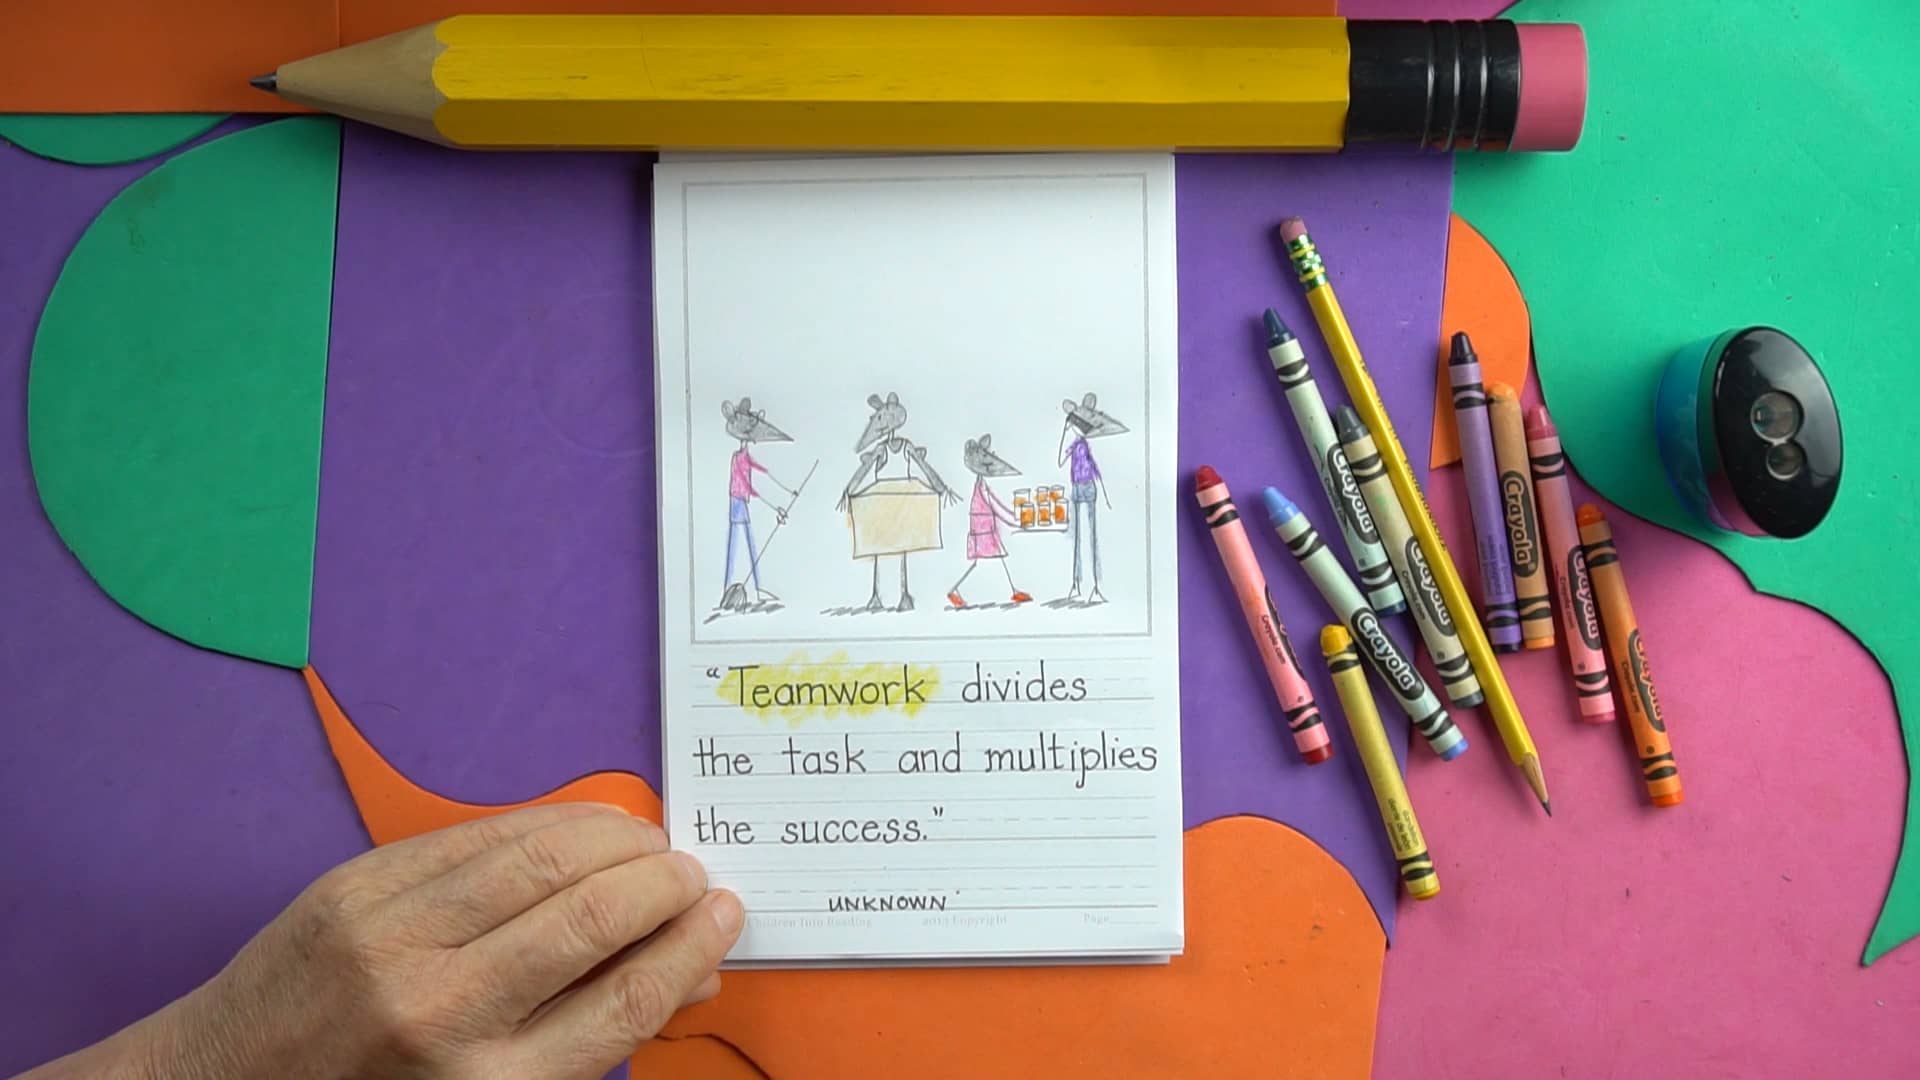 "Teamwork divides
the task and multiplies
the success."
UNKNOWN
Children Into Reading 2013 Copyright Page
Crayola
Crayola
Crayola
Crayola
Crayola
Crayola